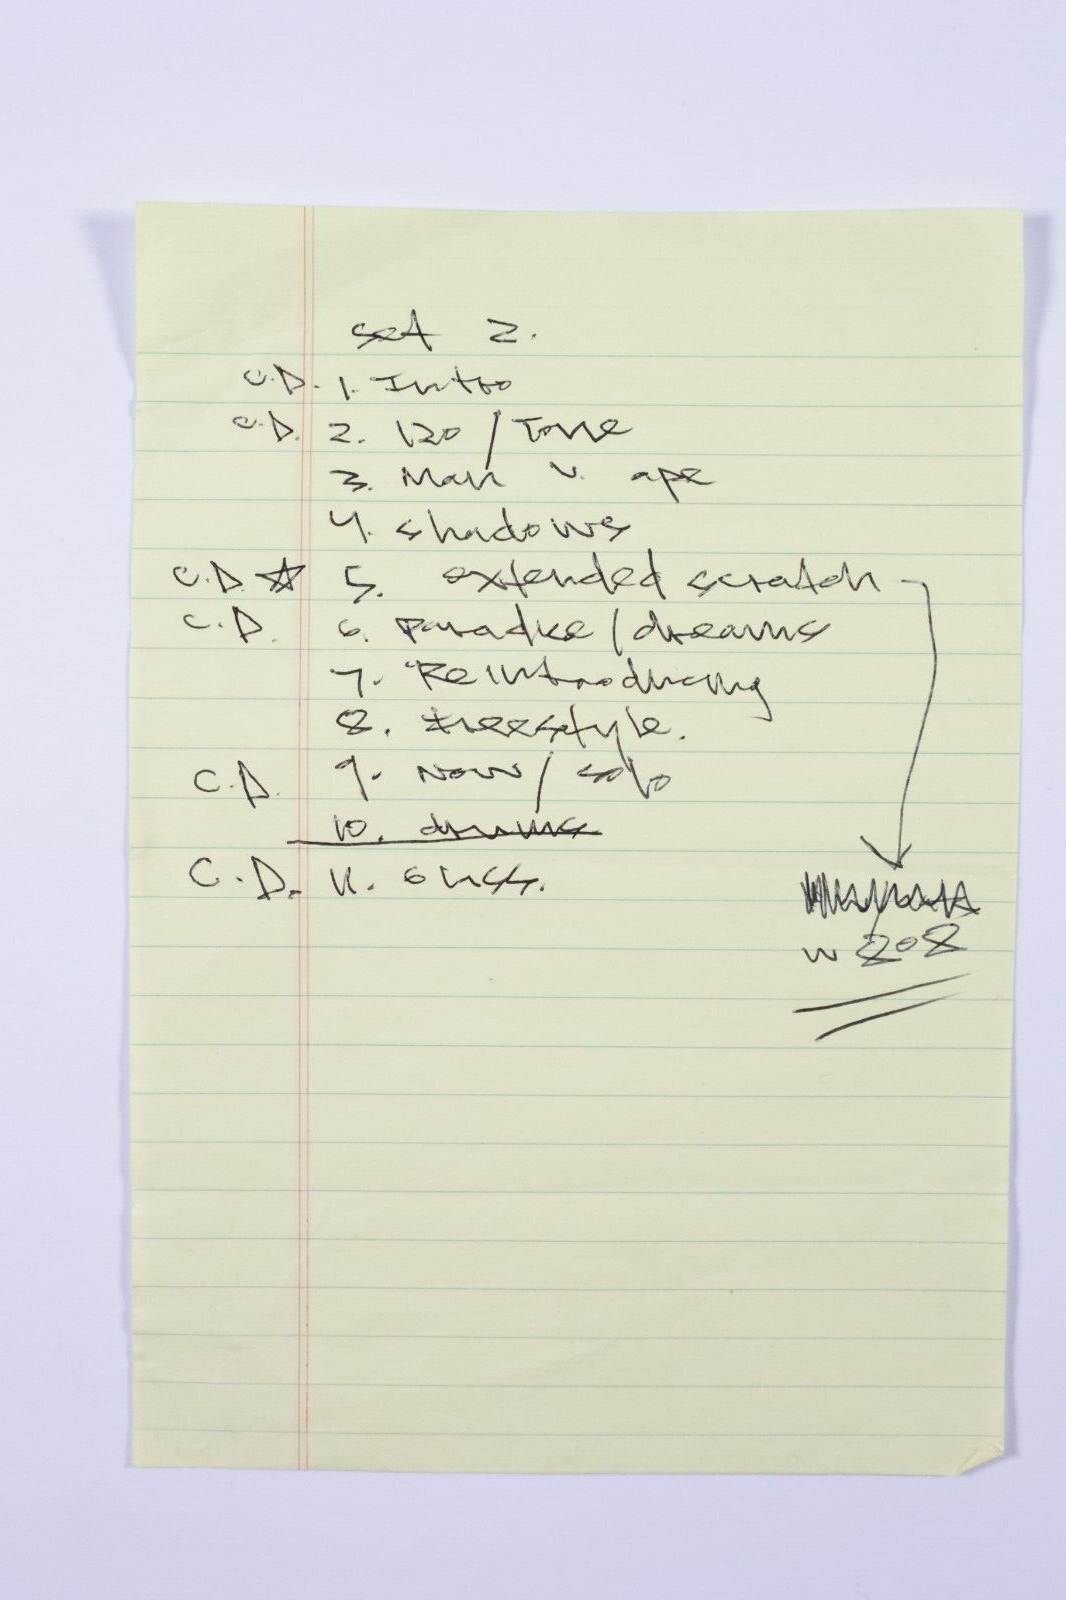 set 2.
C.D. 1. Intro
C.D. 2. 120 / Tone
3. Man v. ape
4. shadows
C.D ☆ 5. extended scratch
C.D. 6. Paradise / dreams
7. Reintroducing
8. freestyle.
C.D. 9. Now / solo
10. drums
C.D. 11.
w 808